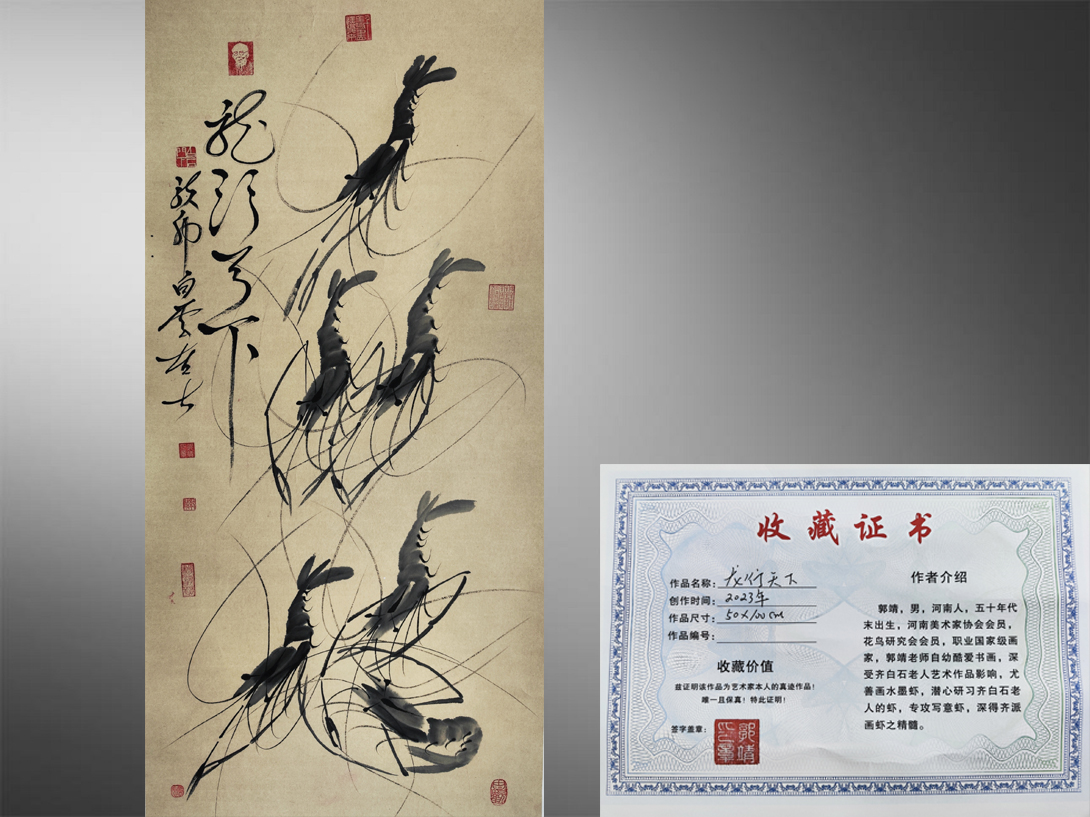 龙行天下
白云居士
收藏证书
作品名称：龙行天下
创作时间：2023年
作品尺寸：50×100cm
作品编号：
收藏价值
兹证明该作品为艺术家本人的真迹作品！
唯一且保真！特此证明！
签字盖章：
作者介绍
郭靖，男，河南人，五十年代
末出生，河南美术家协会会员，
花鸟研究会会员，职业国家级画
家，郭靖老师自幼酷爱书画，深
受齐白石老人艺术作品影响，尤
善画水墨虾，潜心研习齐白石老
人的虾，专攻写意虾，深得齐派
画虾之精髓。